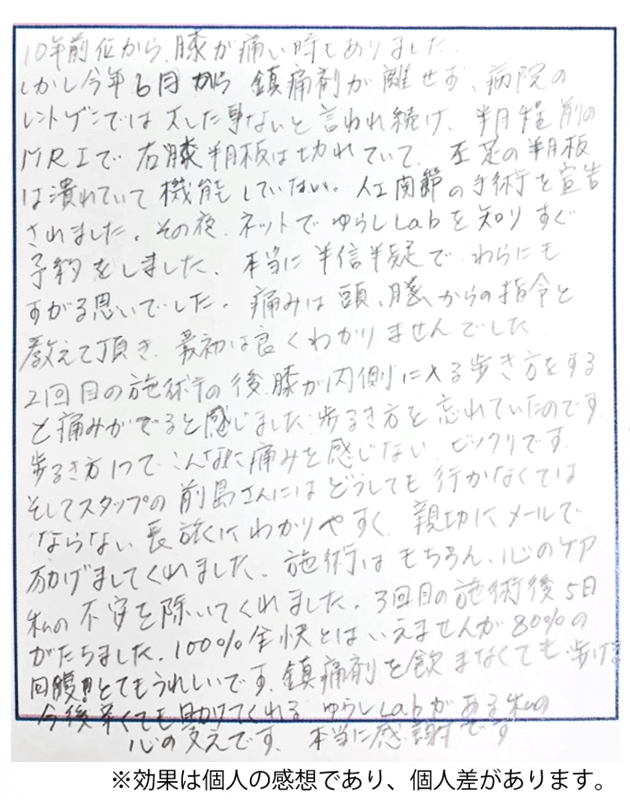 10年前位から、膝が痛い時もありました。
しかし今年6月から 鎮痛剤が離せず、病院の
レントゲンでは大した事ないと言われ続け、半月程前の
MRIで右膝半月板は切れていて、左足の半月板
は潰れていて機能していない。人工関節の手術を宣告
されました。その夜、ネットでゆらしLabを知りすぐ
予約をしました。本当に半信半疑で、わらにも
すがる思いでした。痛みは頭、膝、からの指令と
教えて頂き、最初は良くわかりませんでした。
2回目の施術の後、膝が内側に入る歩き方をする
と痛みがでると感じました。歩るき方を忘れていたのです。
歩るき方1つで、こんなに痛みを感じない、ビックリです。
そしてスタップの前島さんにはどうしても行かなくては
ならない長旅にわかりやすく、親切にメールで
励げましてくれました。施術はもちろん、心のケア
私の不安を除いてくれました。3回目の施術後5日
がたちました。100%全快とはいえませんが80%の
回腹!!とてもうれしいです。鎮痛剤を飲まなくても歩けま
今後辛くても助けてくれるゆらしLabがある私の
心の支えです。本当に感謝です
※効果は個人の感想であり、個人差があります。